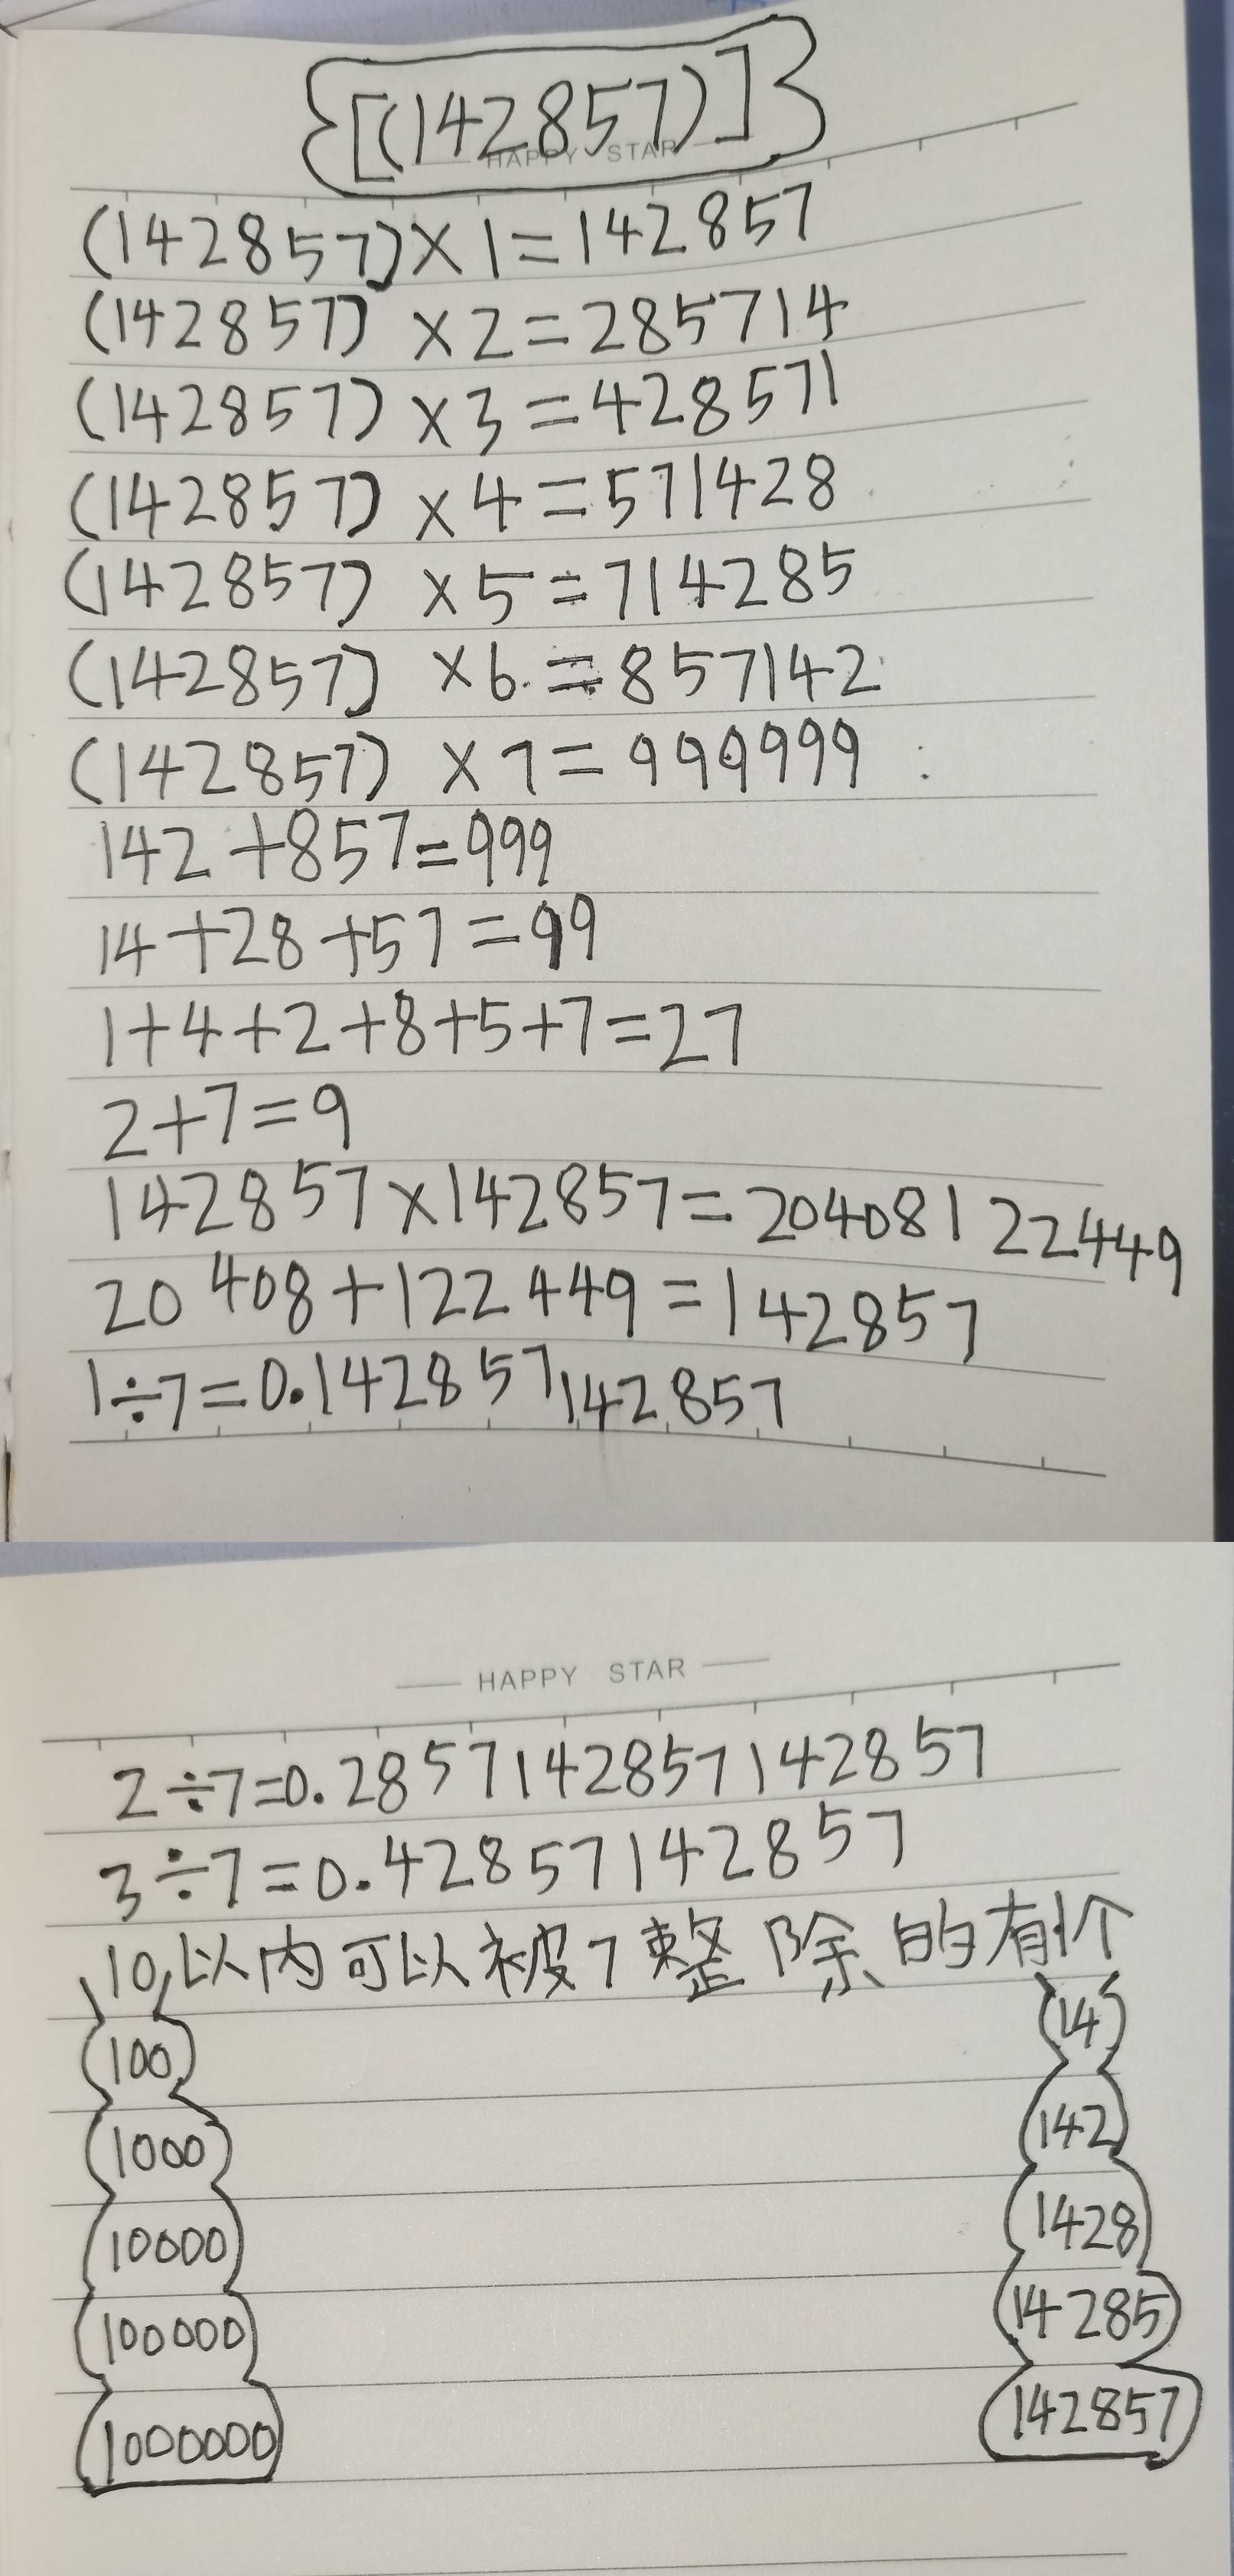 {[(142857)]}
HAPPY STAR
(142857)×1=142857
(142857)×2=285714
(142857)×3=428571
(142857)×4=571428
(142857)×5=714285
(142857)×6=857142
(142857)×7=999999
142+857=999
14+28+57=99
1+4+2+8+5+7=27
2+7=9
142857×142857=20408122449
20408+122449=142857
1÷7=0.142857142857
HAPPY STAR
2÷7=0.2857142857142857
3÷7=0.42857142857
10以内可以被7整除的有1个
(100) (14)
(1000) (142)
(10000) (1428)
(100000) (14285)
(1000000) (142857)